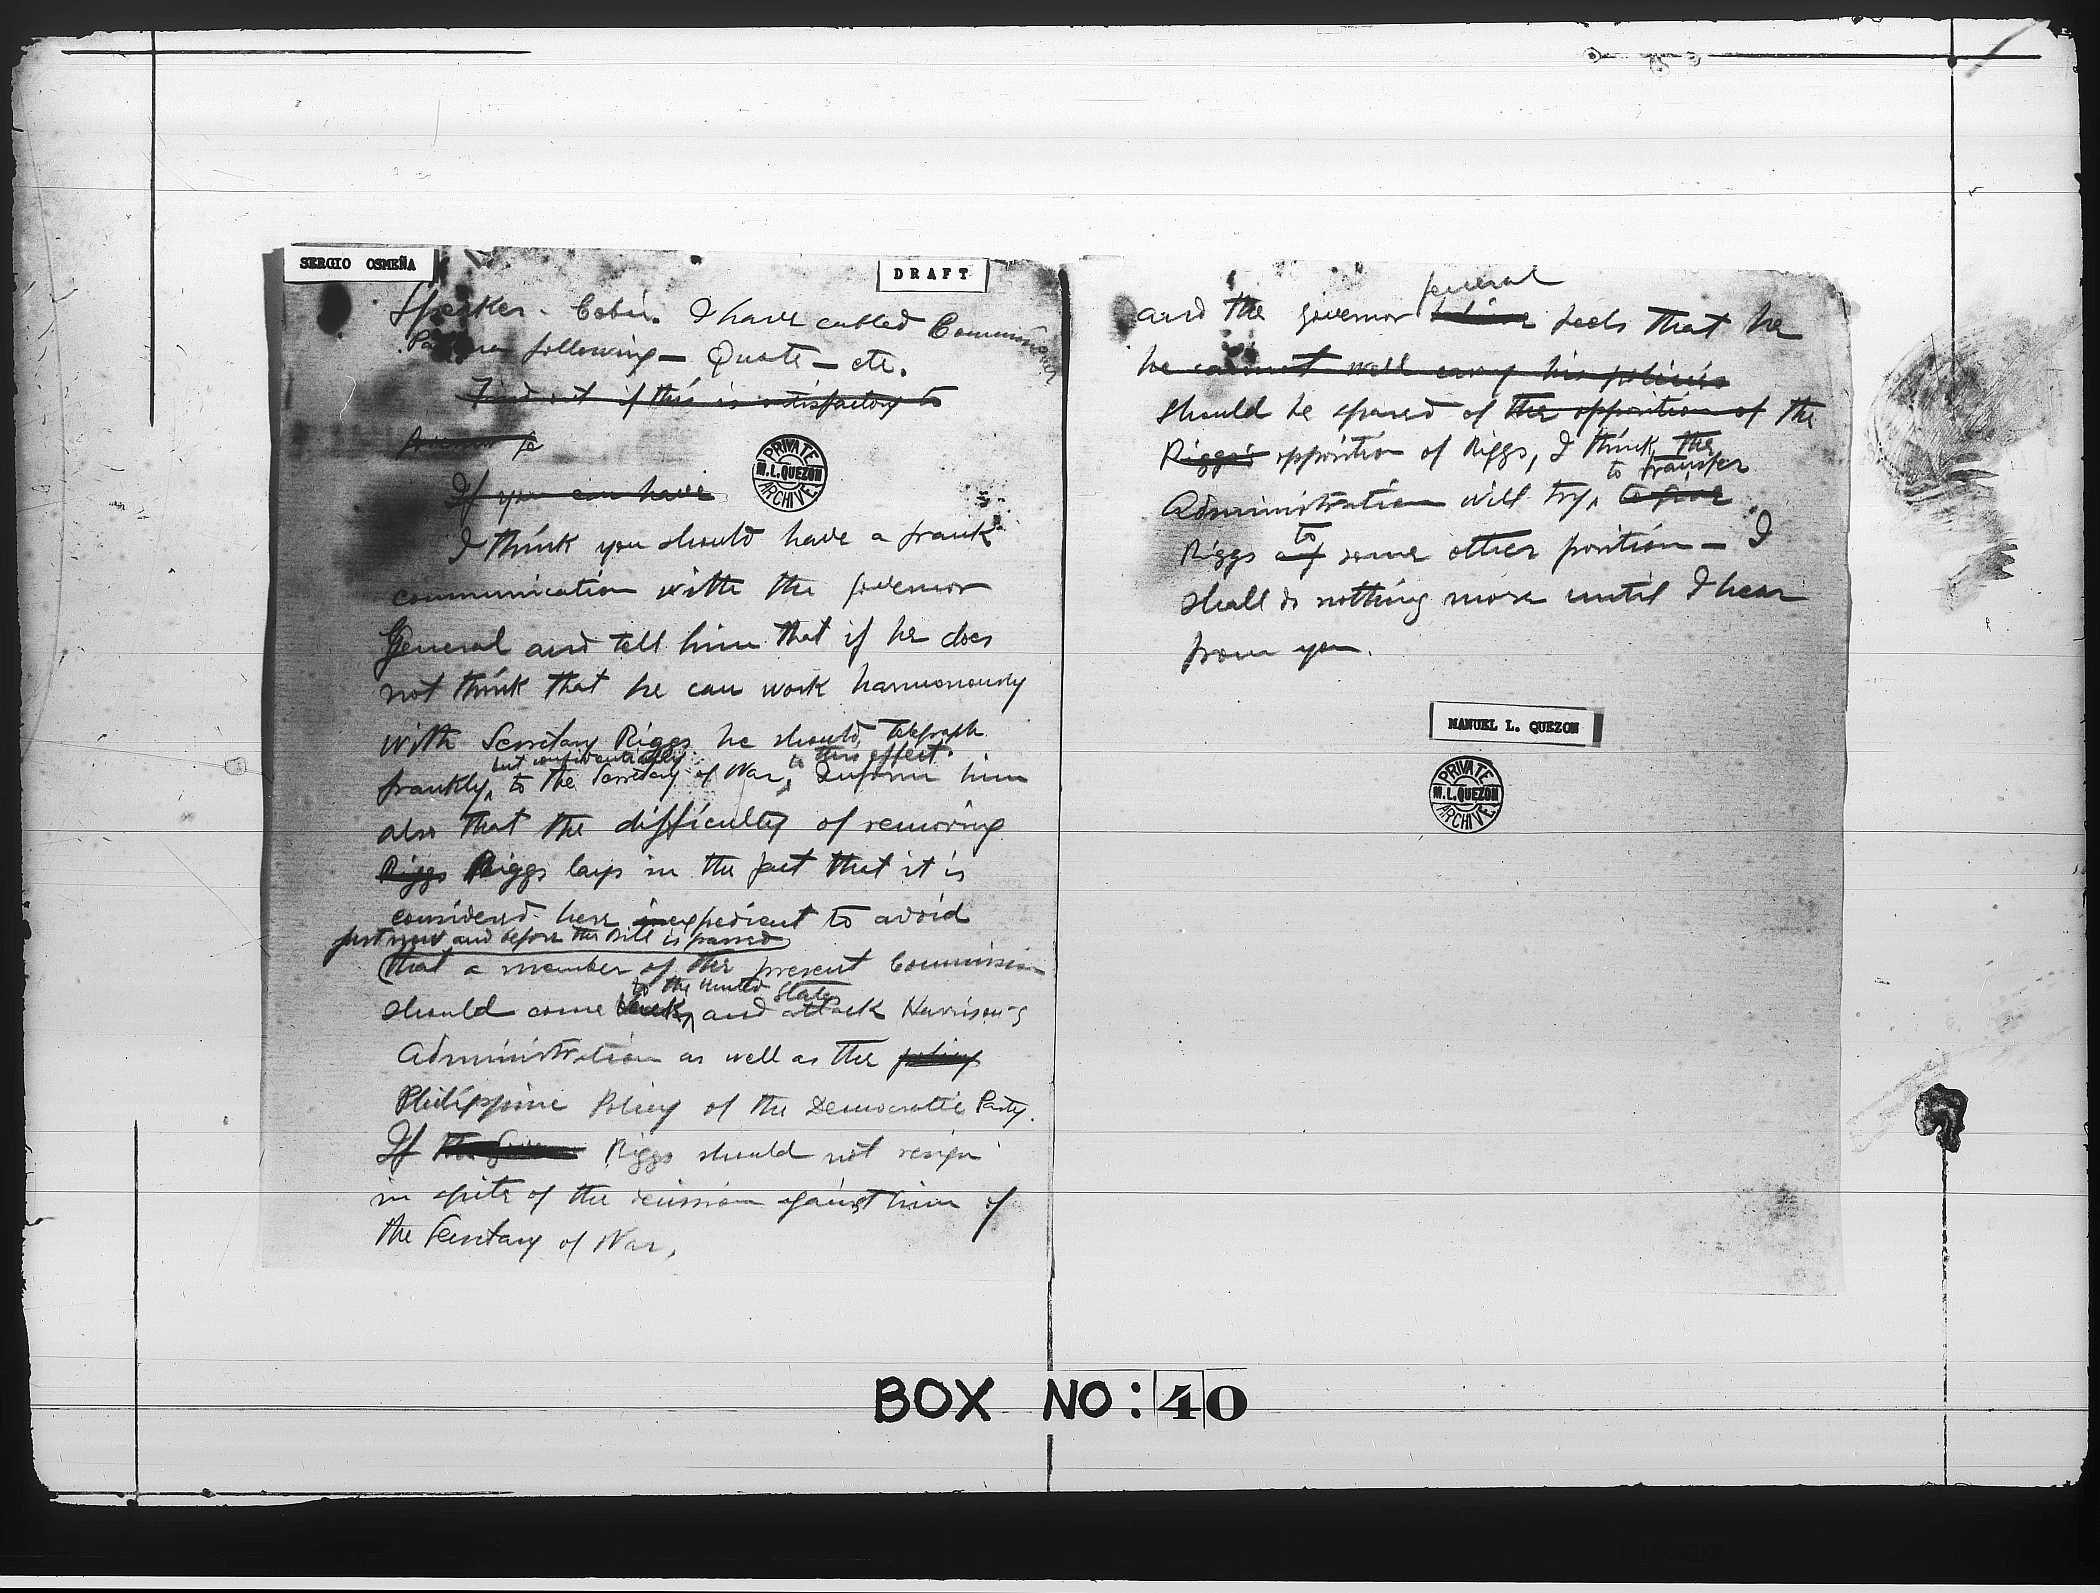 SERGIO OSMEÑA
DRAFT
Speaker - Cebu. I have cabled Commissioner
following - Quote - etc.
Find out if this is satisfactory to
If you can have
I think you should have a frank
communication with the governor
General and tell him that if he does
not think that he can work harmoniously
with Secretary Riggs he should telegraph
but confidentially to this effect.
frankly, to the Secretary of War, Inform him
also that the difficulty of removing
Riggs Riggs lays in the fact that it is
considered here inexpedient to avoid
just now and before the Bill is passed
that a member of the present Commission
to the United States
should come back, and attack Harrison's
Administration as well as the policy
Philippine Policy of the Democratic Party.
If Riggs should not resign
in spite of the decission against him of
the Secretary of War,
general
and the governor believe feels that he
he cannot well carry his policies
should be spared of the opposition of the
Riggs's opposition of Riggs, I think the
to transfer
Administration will try, to give
to
Riggs of some other position - I
shall do nothing more until I hear
from you.
PRIVATE
M.L.QUEZON
ARCHIVE
MANUEL L. QUEZON
PRIVATE
M.L.QUEZON
ARCHIVE
BOX NO: 40